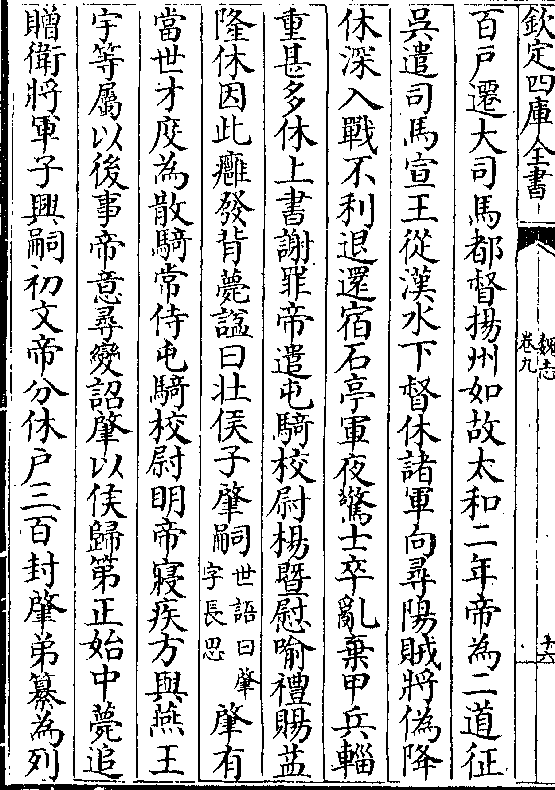 欽定四庫全書
魏志
卷九
十六
百戸遷大司馬都督揚州如故太和二年帝為二道征
吳遣司馬宣王從漢水下督休諸軍向尋陽賊將偽降
休深入戰不利退還宿石亭軍夜驚士卒亂棄甲兵輜
重甚多休上書謝罪帝遣屯騎校尉楊暨慰喻禮賜益
隆休因此癰發背薨諡曰壯侯子肇嗣世語曰肇字長思肇有
當世才度為散騎常侍屯騎校尉明帝寢疾方與燕王
宇等屬以後事帝意尋變詔肇以侯歸第正始中薨追
贈衛將軍子興嗣初文帝分休戸三百封肇弟纂為列